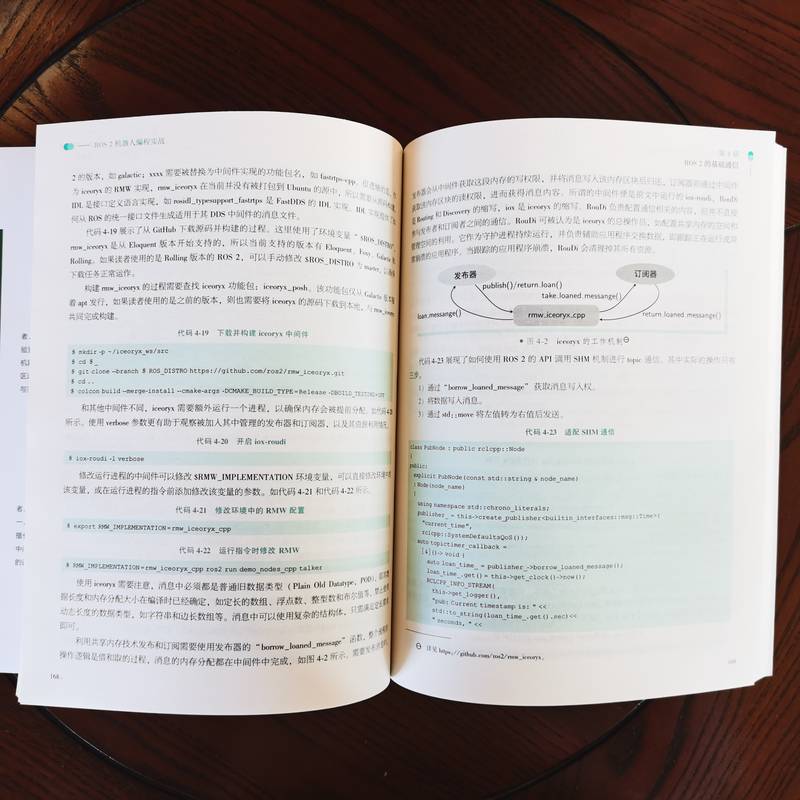 ROS 2 机器人编程实战
2 的版本，如 galactic；xxxx 需要被替换为中间件实现的功能包名，如 fastrtps-cpp。但遗憾的是，作
为 iceoryx 的 RMW 实现，rmw_iceoryx 在当前并没有被打包到 Ubuntu 的源中，所以需要从源码构建。
IDL 是接口定义语言实现，如 rosidl_typesupport_fastrtps 是 FastDDS 的 IDL 实现。IDL 实现提供了如
何从 ROS 的统一接口文件生成适用于其 DDS 中间件的消息文件。
代码 4-19 展示了从 GitHub 下载源码并构建的过程。这里使用了环境变量 “$ROS_DISTRO”，
rmw_iceoryx 是从 Eloquent 版本开始支持的，所以当前支持的版本有 Eloquent、Foxy、Galactic 和
Rolling。如果读者使用的是 Rolling 版本的 ROS 2，可以手动修改 $ROS_DISTRO 为 master，以确保
下载任务正常运作。
构建 rmw_iceoryx 的过程需要查找 iceoryx 功能包：iceoryx_posh。该功能包仅从 Galactic 版本随
着 apt 发行，如果读者使用的是之前的版本，则也需要将 iceoryx 的源码下载到本地，与 rmw_iceoryx
共同完成构建。
代码 4-19 下载并构建 iceoryx 中间件
$ mkdir -p ~/iceoryx_ws/src
$ cd $_
$ git clone --branch $ROS_DISTRO https://github.com/ros2/rmw_iceoryx.git
$ cd ..
$ colcon build --merge-install --cmake-args -DCMAKE_BUILD_TYPE=Release -DBUILD_TESTING=OFF
和其他中间件不同，iceoryx 需要额外运行一个进程，以确保内存会被提前分配。如代码 4-20
所示。使用 verbose 参数更有助于观察被加入其中管理的发布器和订阅器，以及其资源利用情况。
代码 4-20 开启 iox-roudi
$ iox-roudi -l verbose
修改运行进程的中间件可以修改 $RMW_IMPLEMENTATION 环境变量，可以直接修改环境中的
该变量，或在运行进程的指令前添加修改该变量的参数。如代码 4-21 和代码 4-22 所示。
代码 4-21 修改环境中的 RMW 配置
$ export RMW_IMPLEMENTATION=rmw_iceoryx_cpp
代码 4-22 运行指令时修改 RMW
$ RMW_IMPLEMENTATION=rmw_iceoryx_cpp ros2 run demo_nodes_cpp talker
使用 iceoryx 需要注意，消息中必须都是普通旧数据类型（Plain Old Datatype，POD），即其数
据长度和内存分配大小在编译时已经确定，如定长的数组、浮点数、整型数和布尔值等，禁止使用
动态长度的数据类型，如字符串和边长数组等。消息中可以使用复杂的结构体，只需满足定长要求
即可。
利用共享内存技术发布和订阅需要使用发布器的 “borrow_loaned_message” 函数，整个预期的
操作逻辑是借和取的过程，消息的内存分配都在中间件中完成，如图 4-2 所示，需要发布消息时，
168
第 4 章
ROS 2 的基础通信
发布器会从中间件获取这段内存的写权限，并将消息写入该内存区块后归还，订阅器则通过中间件
获取该内存区块的读权限，进而获得消息内容。所谓的中间件便是前文中运行的 iox-roudi。RouDi
是 Routing 和 Discovery 的缩写，iox 是 iceoryx 的缩写。RouDi 负责配置通信相关的内容，但并不直接
参与发布者和订阅者之间的通信。RouDi 可被认为是 iceoryx 的总操作员，如配置共享内存的空间和
管理空间的利用。它作为守护进程持续运行，并负责辅助应用程序交换数据，即跟踪正在运行或异
常崩溃的应用程序，当跟踪的应用程序崩溃，RouDi 会清理掉其所有资源。
发布器
订阅器
publish()/return.loan()
take.loaned.messange()
loan.messange()
rmw.iceoryx.cpp
return.loaned.messange()
图 4-2 iceoryx 的工作机制㊀
代码 4-23 展现了如何使用 ROS 2 的 API 调用 SHM 机制进行 topic 通信。其中实际的操作只有
三步。
1）通过 “borrow_loaned_message” 获取消息写入权。
2）将数据写入消息。
3）通过 std::move 将左值转为右值后发送。
代码 4-23 适配 SHM 通信
class PubNode : public rclcpp::Node
{
public:
explicit PubNode(const std::string & node_name)
: Node(node_name)
{
using namespace std::chrono_literals;
publisher_ = this->create_publisher<builtin_interfaces::msg::Time>(
"current_time",
rclcpp::SystemDefaultsQoS());
auto topictimer_callback =
[&]()-> void {
auto loan_time_ = publisher_->borrow_loaned_message();
loan_time_.get() = this->get_clock()->now();
RCLCPP_INFO_STREAM(
this->get_logger(),
"pub: Current timestamp is: " <<
std::to_string(loan_time_.get().sec)<<
" seconds, " <<
㊀ 详见 https://github.com/ros2/rmw_iceoryx。
169